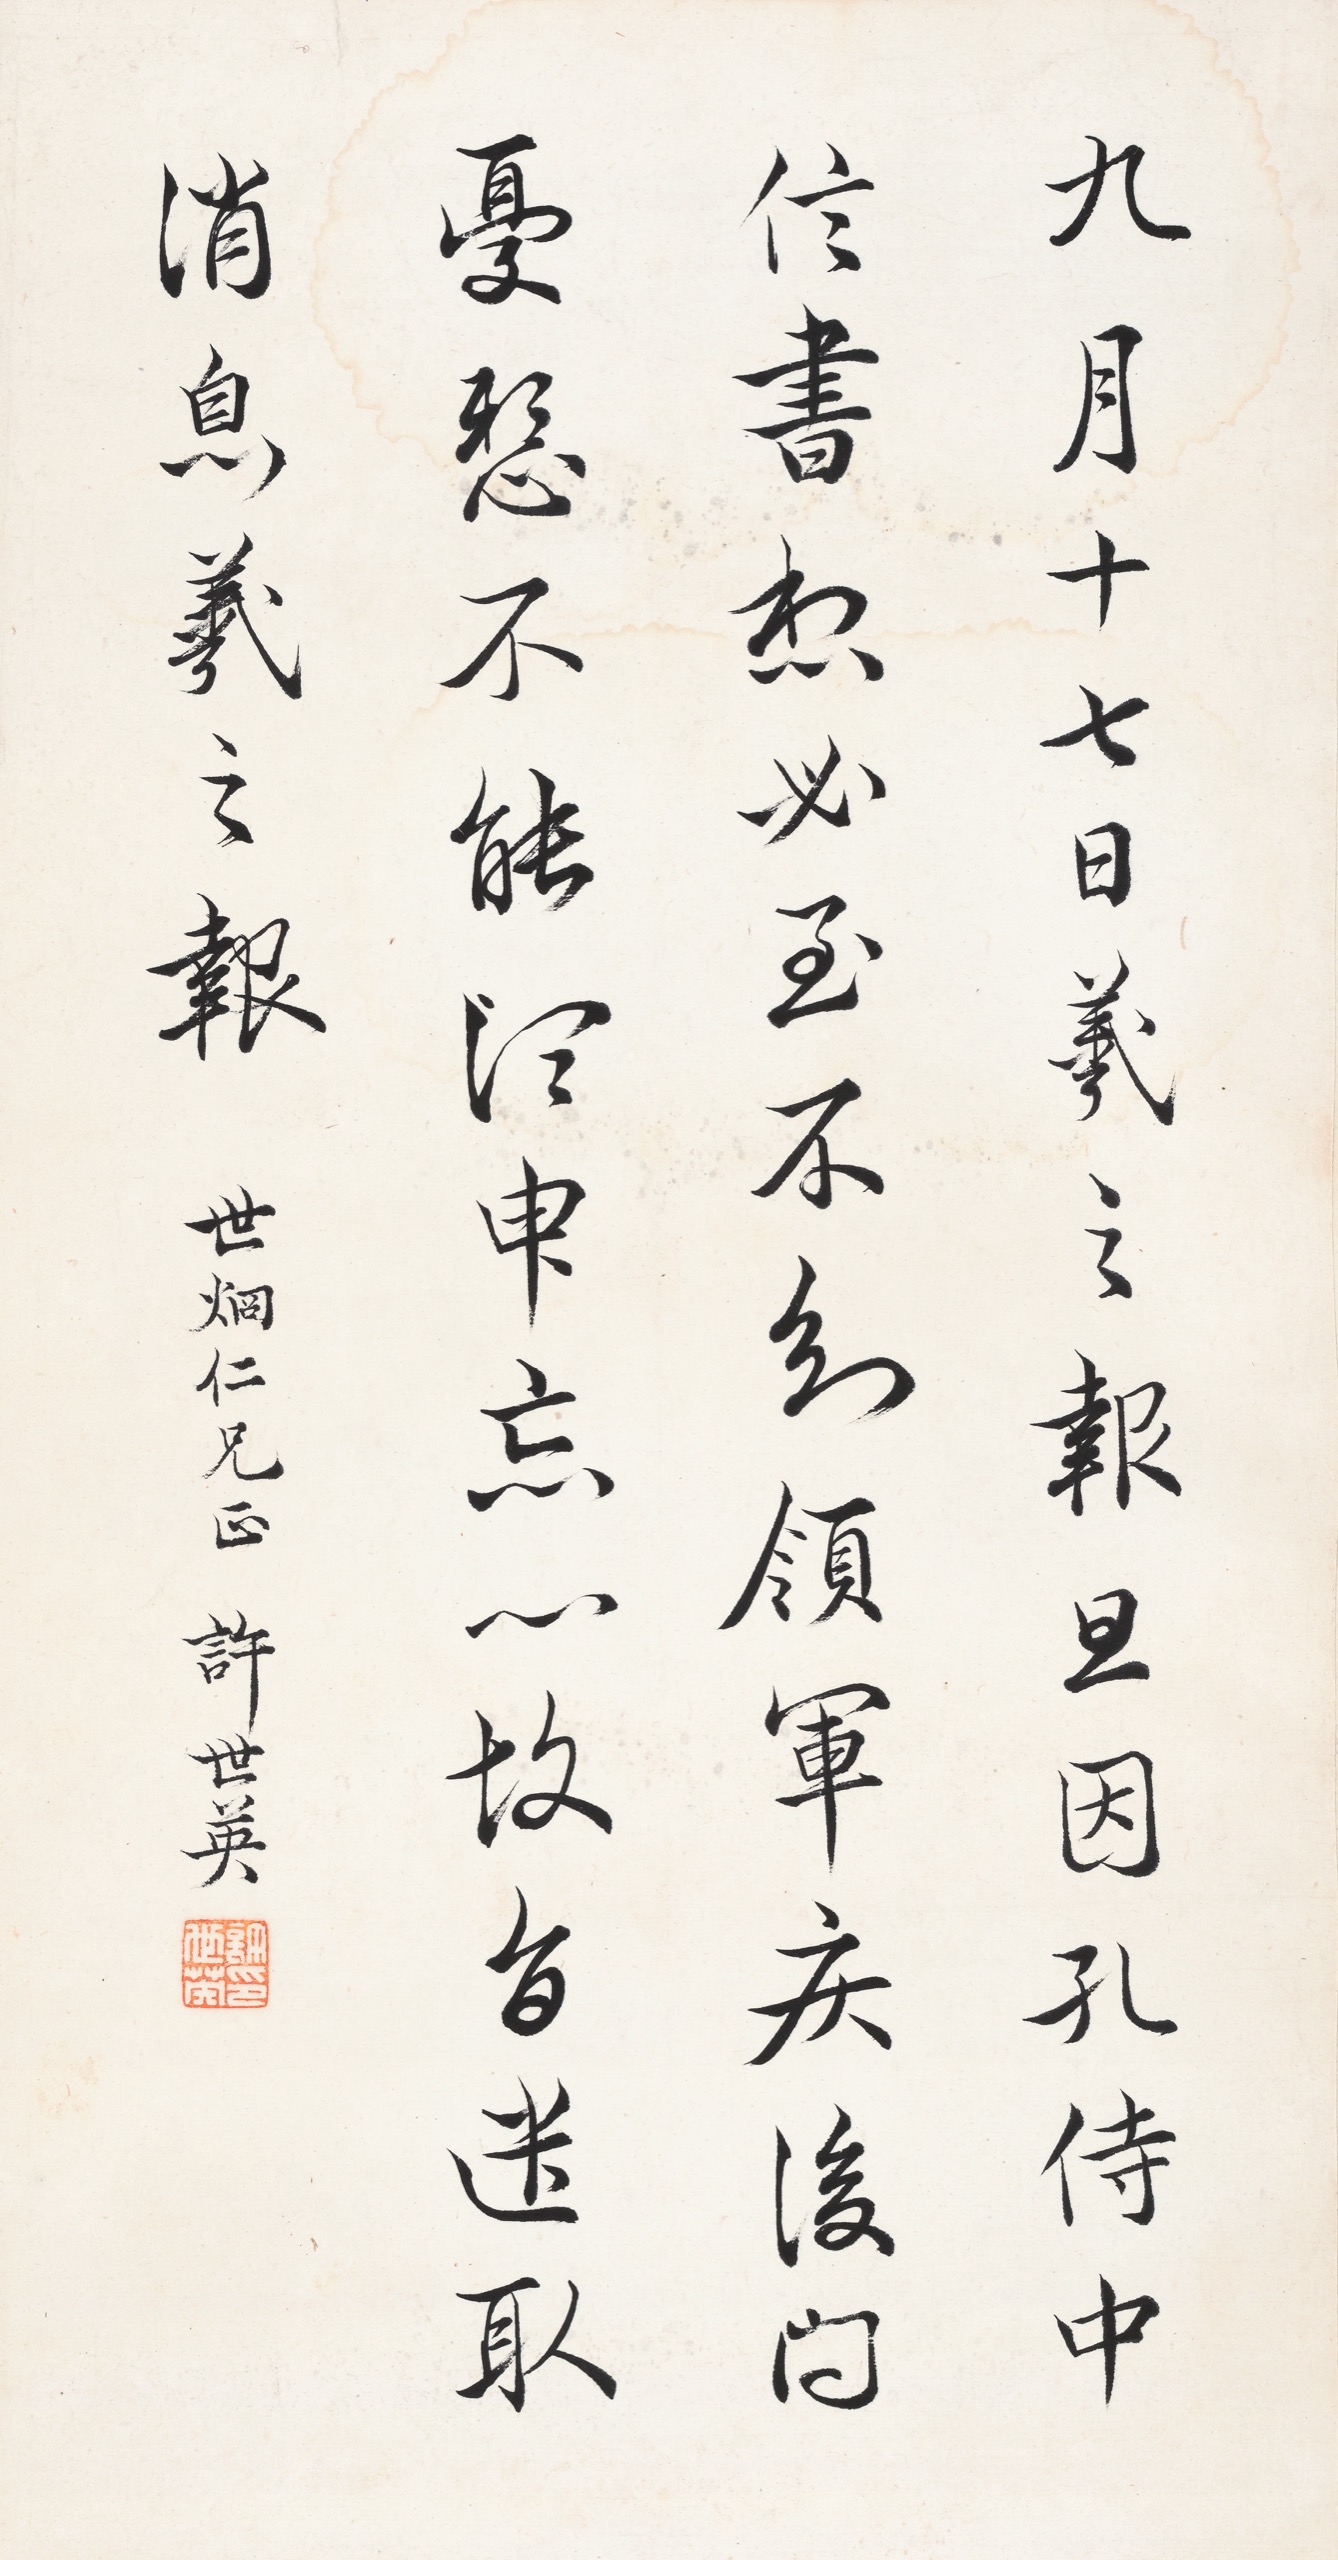 九月十七日羲之報且因孔侍中
信書想必至不知領軍疾後問
憂懸不能須申忘心故旨遣取
消息羲之報 世焵仁兄正 許世英
許世英印